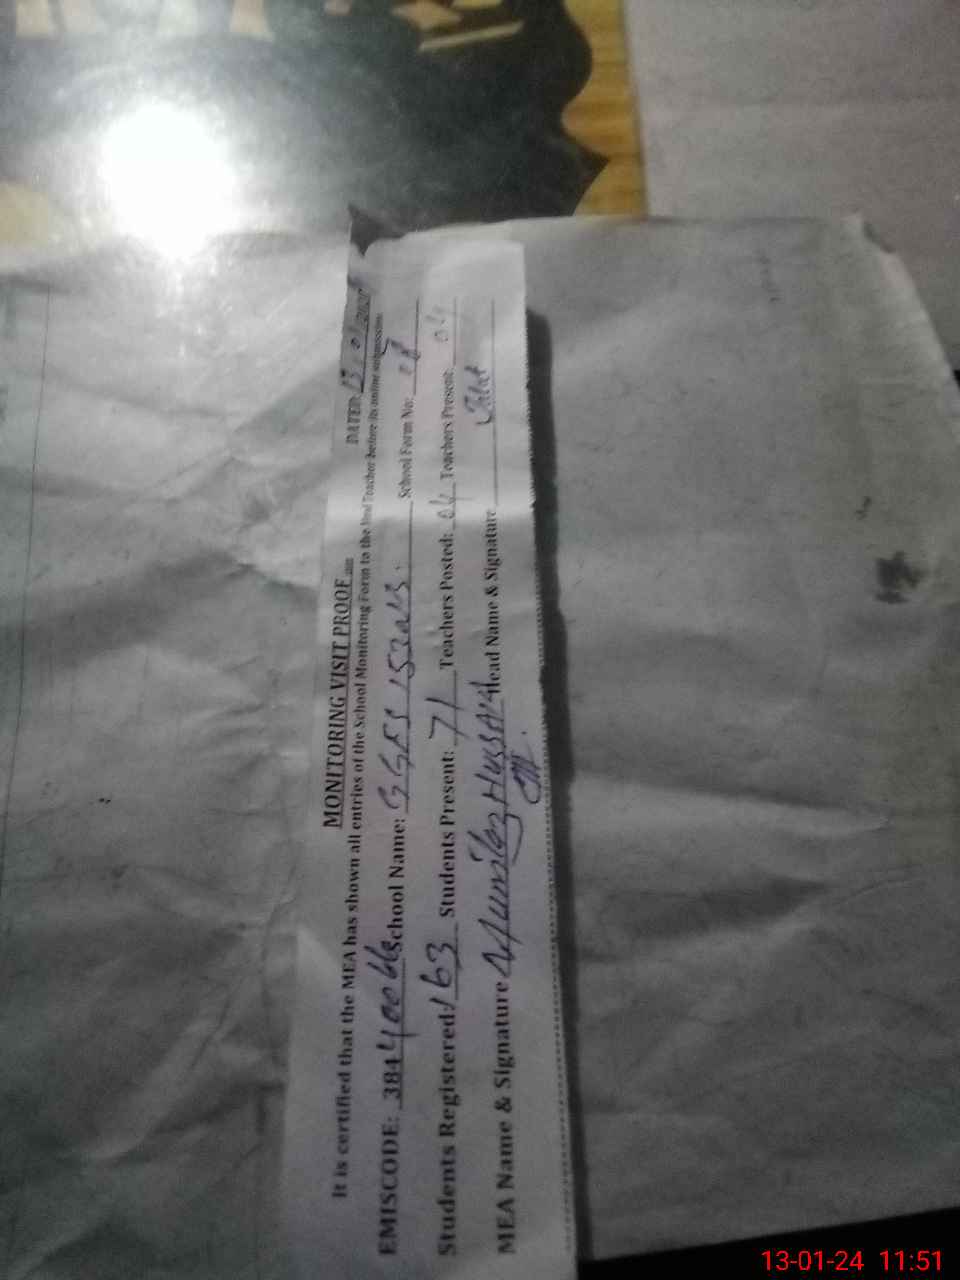 MONITORING VISIT PROOF
DATED: 13/01/202
It is certified that the MEA has shown all entries of the School Monitoring Form to the Head Teacher before its online submission.
EMISCODE: 38440066 School Name: GGES 153NB. School Form No:
Students Registered: 163 Students Present: 71 Teachers Posted: 04 Teachers Present: 04
MEA Name & Signature Hussain Head Name & Signature
13-01-24 11:51